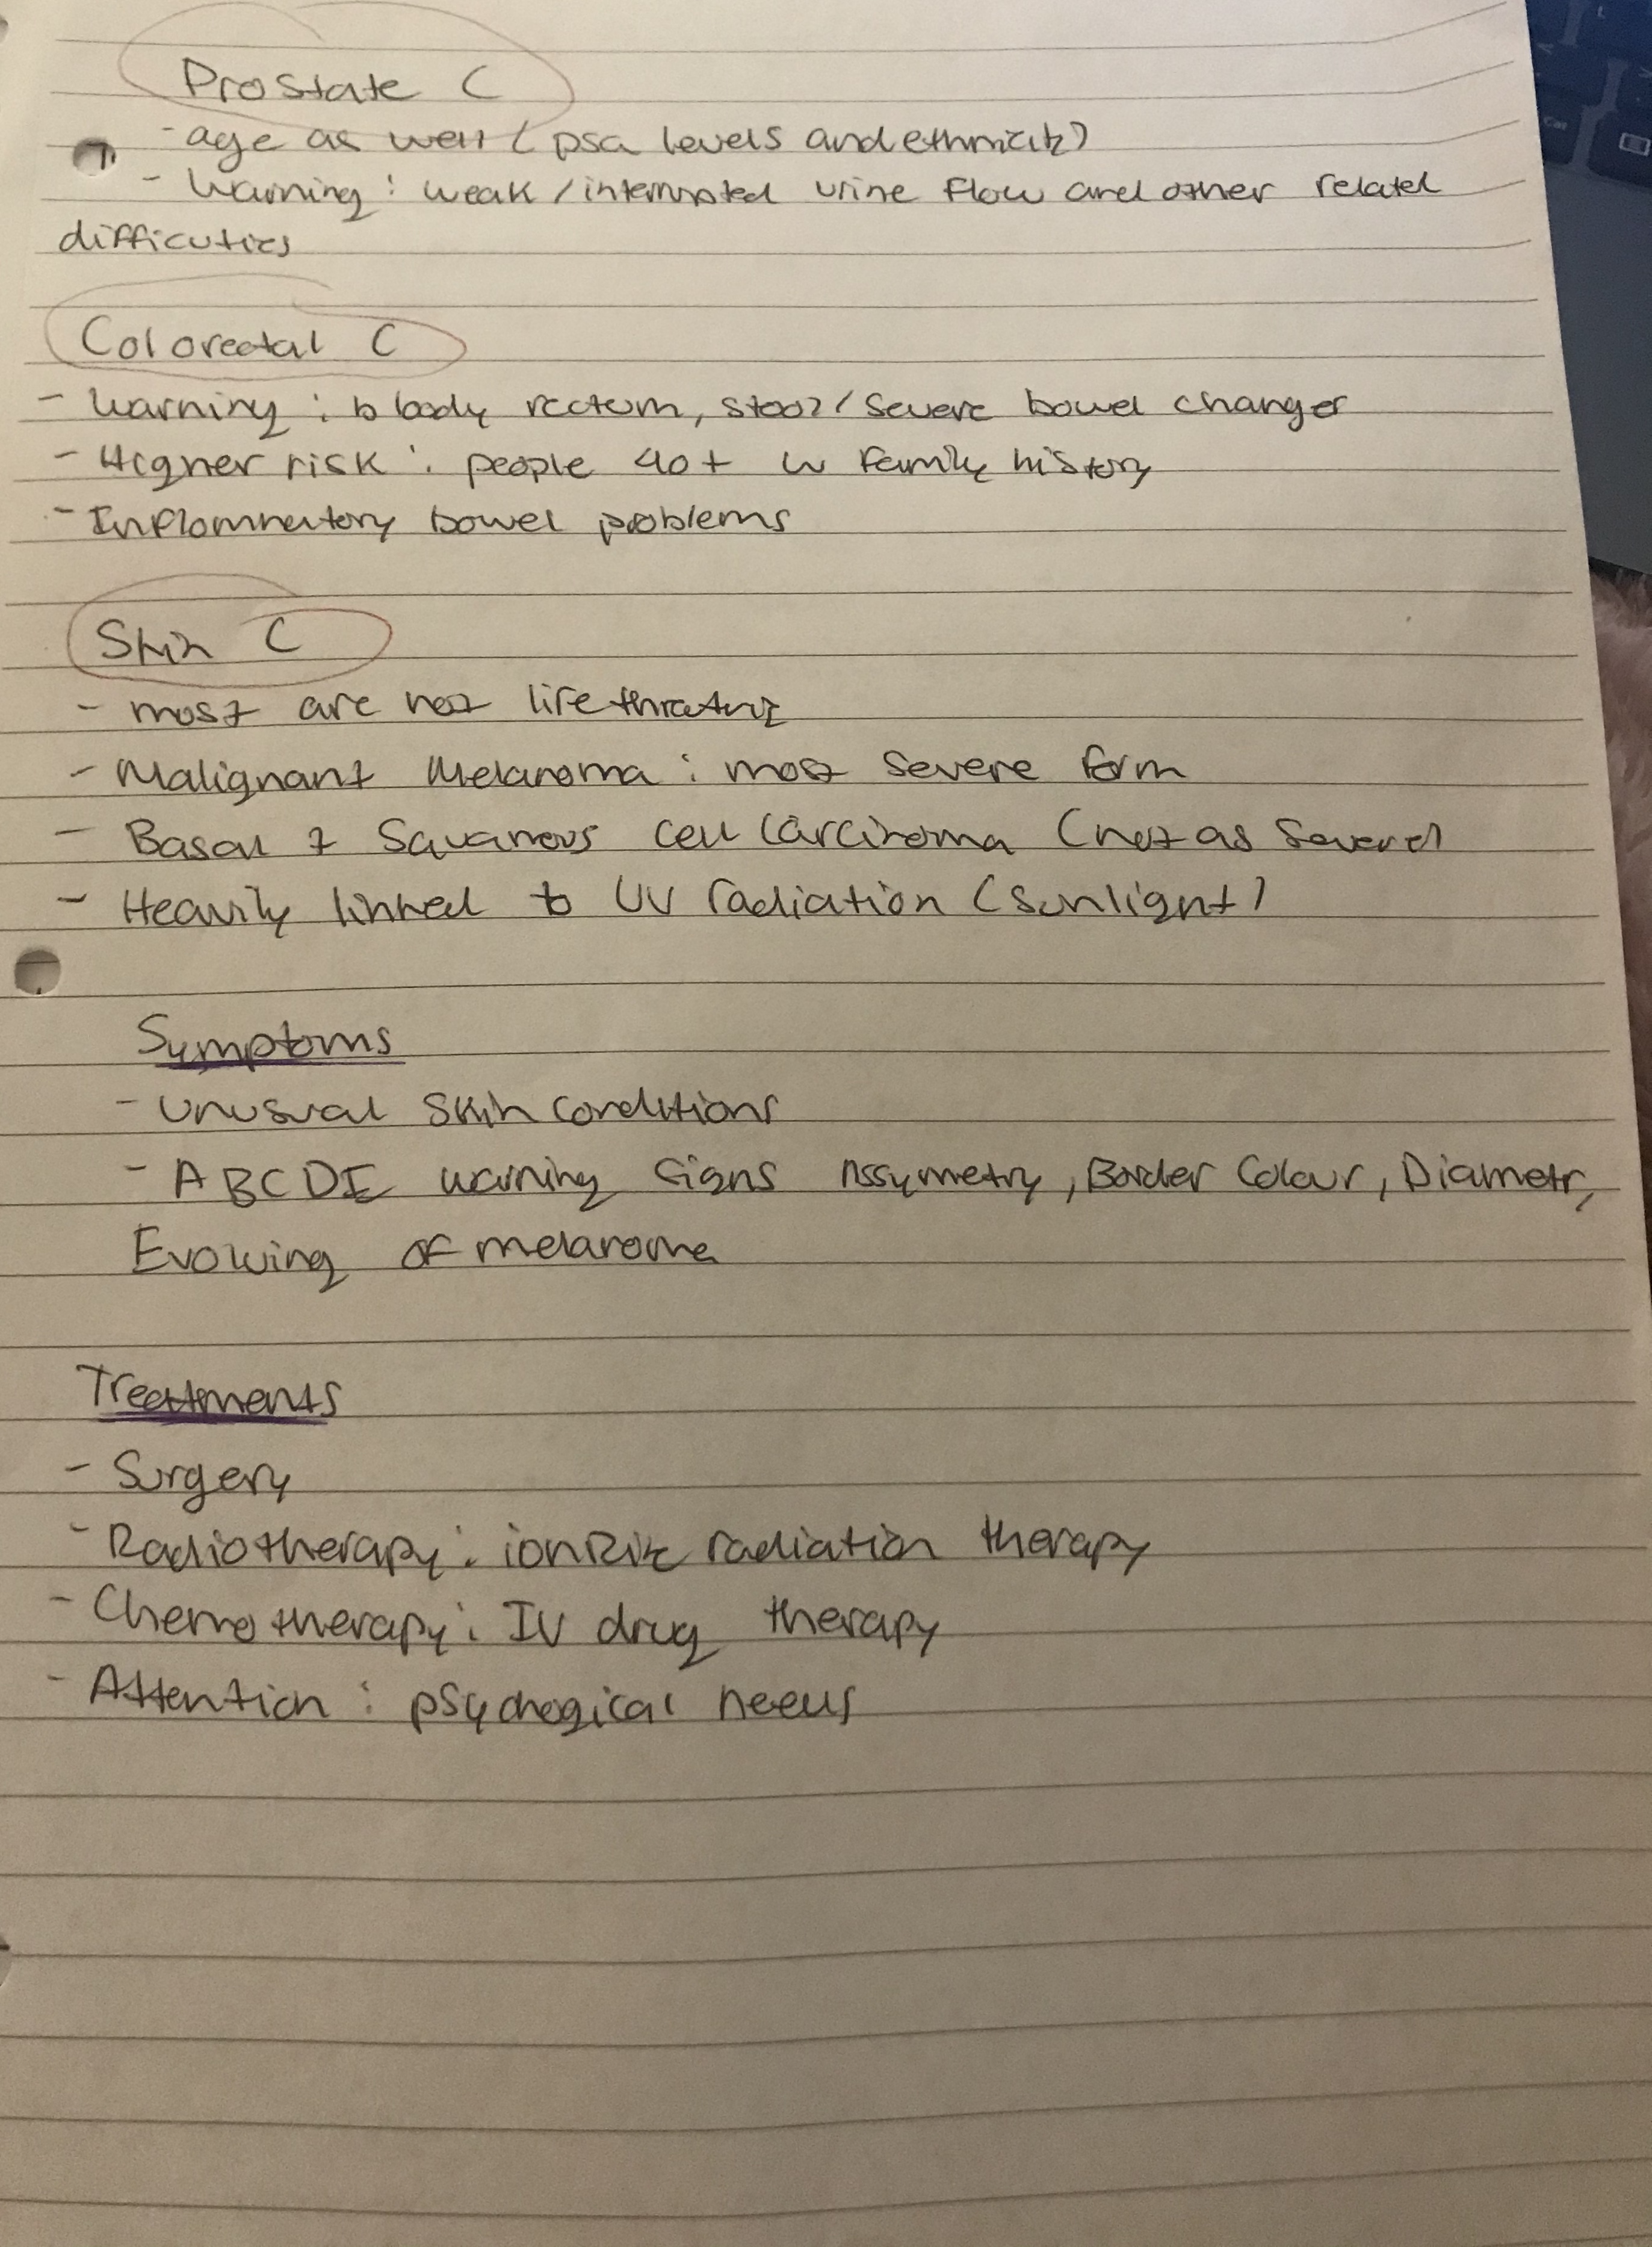 Prostate C
- age as well (psa levels and ethnicity)
- Warning: weak/interrupted urine flow and other related
difficuties
Colorectal C
- Warning: bloody rectum, stool/severe bowel changes
- Higher risk: people 40+ w family history
- Inflammatory bowel problems
Skin C
- most are not life
- Malignant Melanoma: most severe form
- Basal + Squamous cell carcinoma (not as severe)
- Heavily linked to UV radiation (sunlight)
Symptoms
- unusual skin conditions
- ABCDE warning signs Assymetry, Border Colour, Diametr,
Evolving of melanoma
Treatments
- Surgery
- Radiotherapy: radiation therapy
- Chemotherapy: IV drug therapy
- Attention: psychogical needs